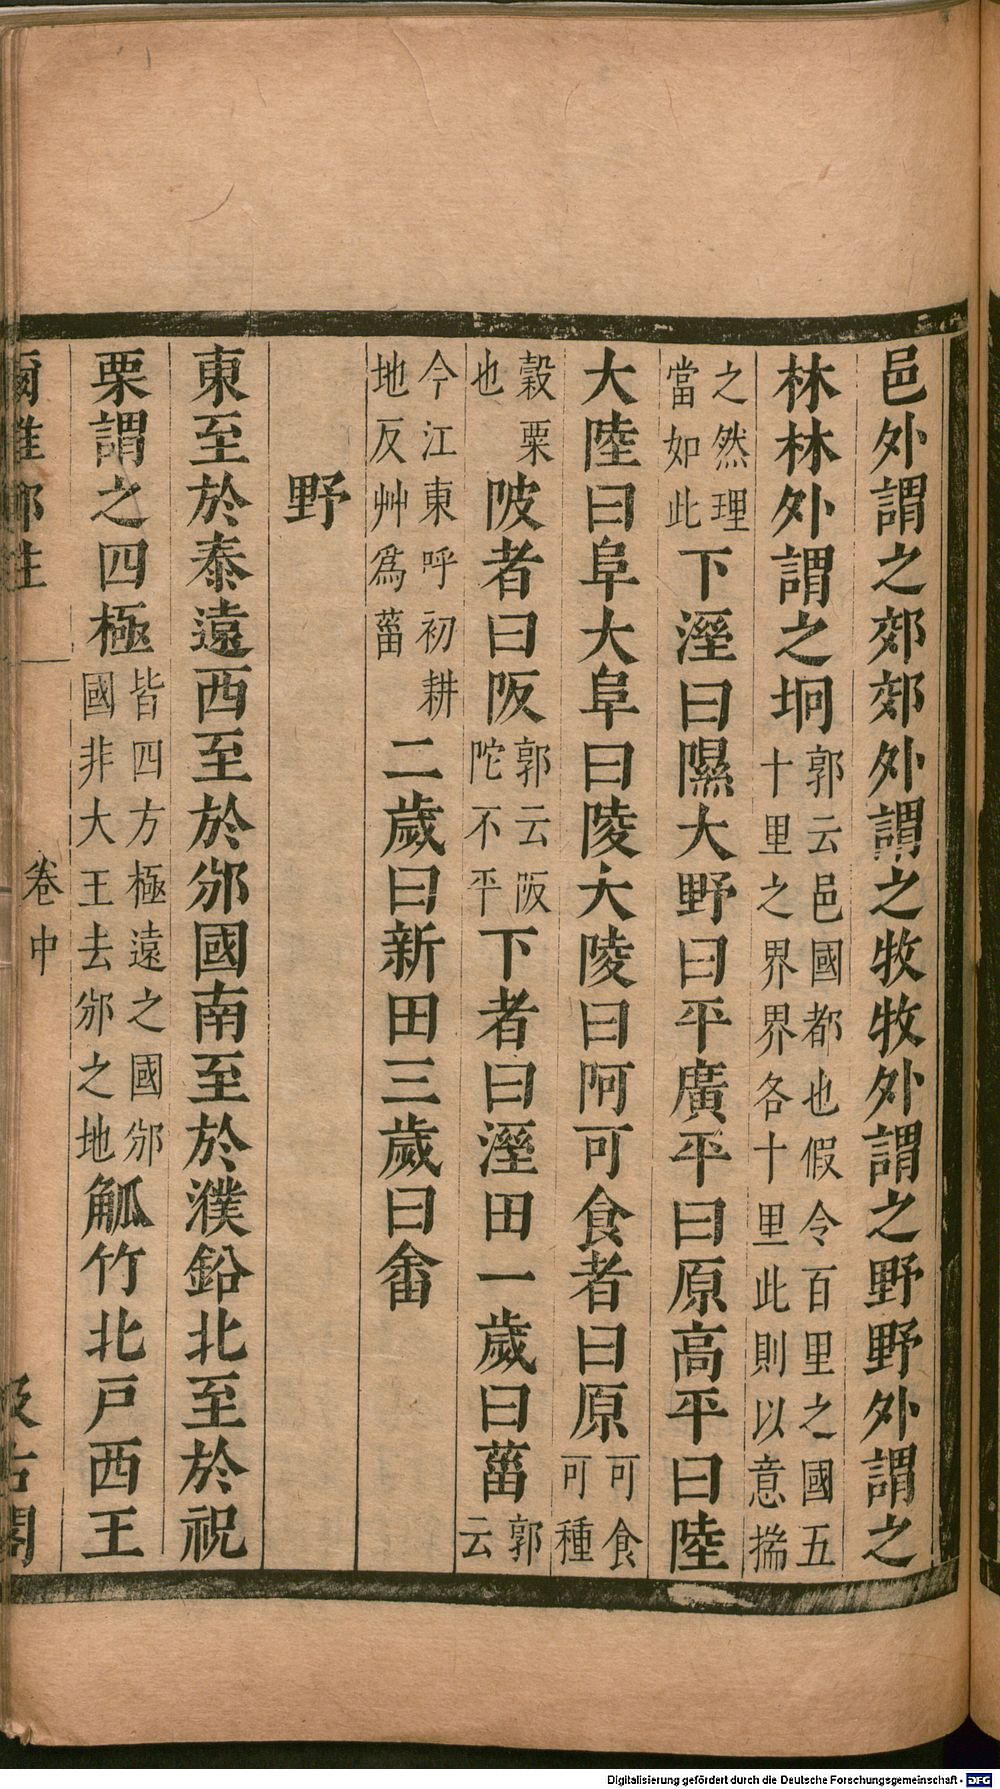 邑外謂之郊郊外謂之牧牧外謂之野野外謂之
林林外謂之坰郭云邑國都也假令百里之國五十里之界界各十里此則以意揣
之然理當如此下溼曰隰大野曰平廣平曰原高平曰陸
大陸曰阜大阜曰陵大陵曰阿可食者曰原可食可種
穀粟也陂者曰阪郭云阪陀不平下者曰溼田一歲曰菑郭云
今江東呼初耕地反艸爲菑二歲曰新田三歲曰畬
野
東至於泰遠西至於邠國南至於濮鉛北至於祝
栗謂之四極皆四方極遠之國邠國非大王去邠之地觚竹北戸西王
爾雅鄭注
卷中
汲古閣
Digitalisierung gefördert durch die Deutsche Forschungsgemeinschaft - DFG